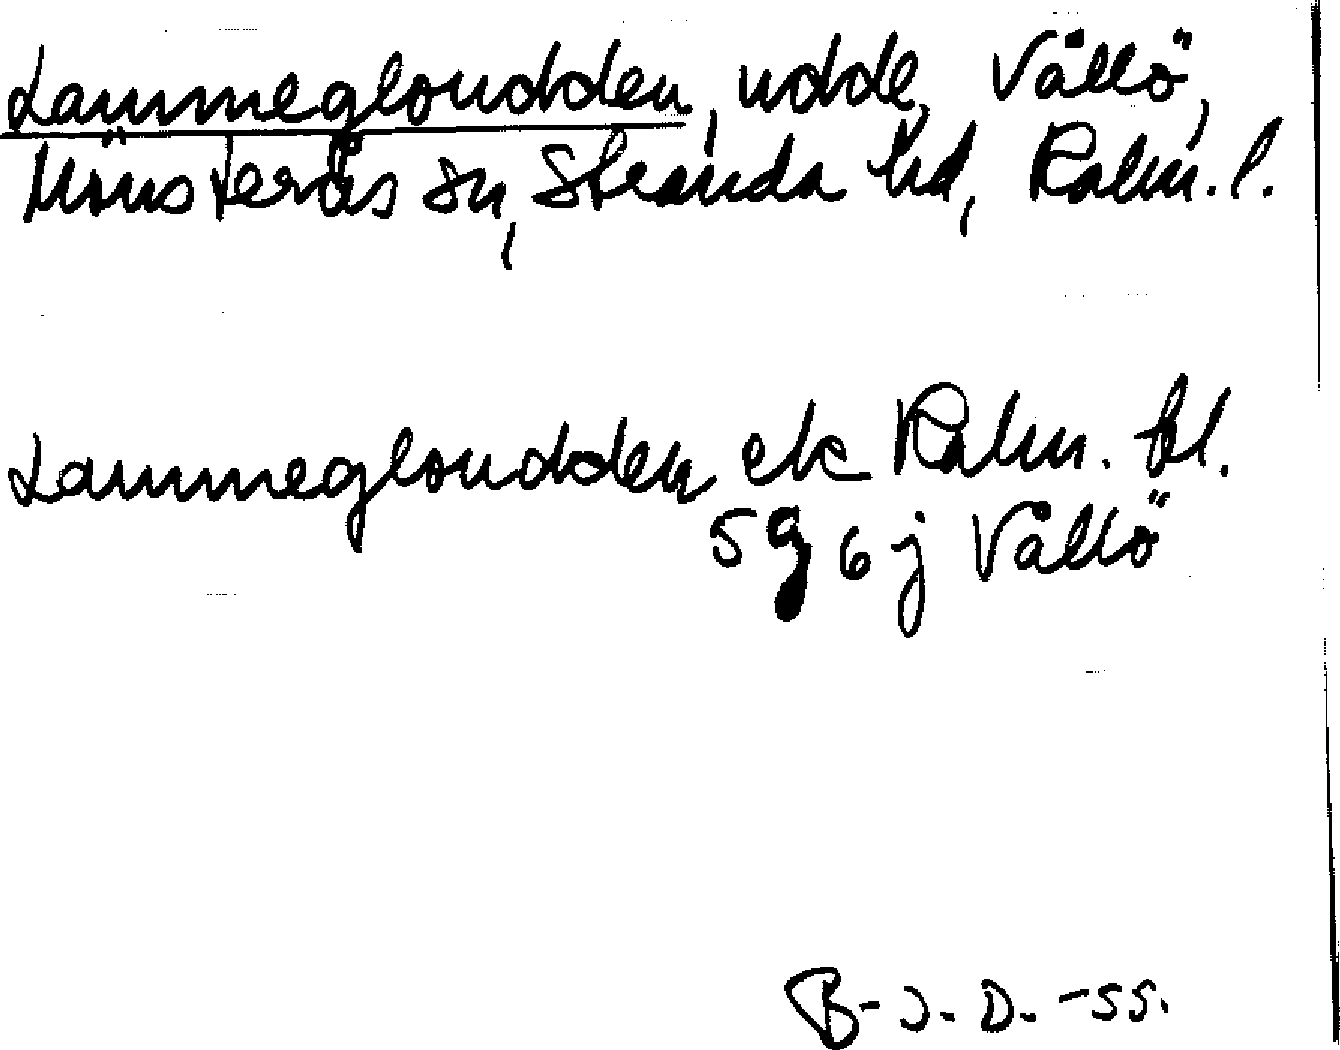 Lammegloudden, udde, Vållö,
Mönsterås sn, Stranda hd, Kalm. l.
Lammegloudden ek Kalm. bl.
5 g 6 j Vållö
B-J. D. -55.